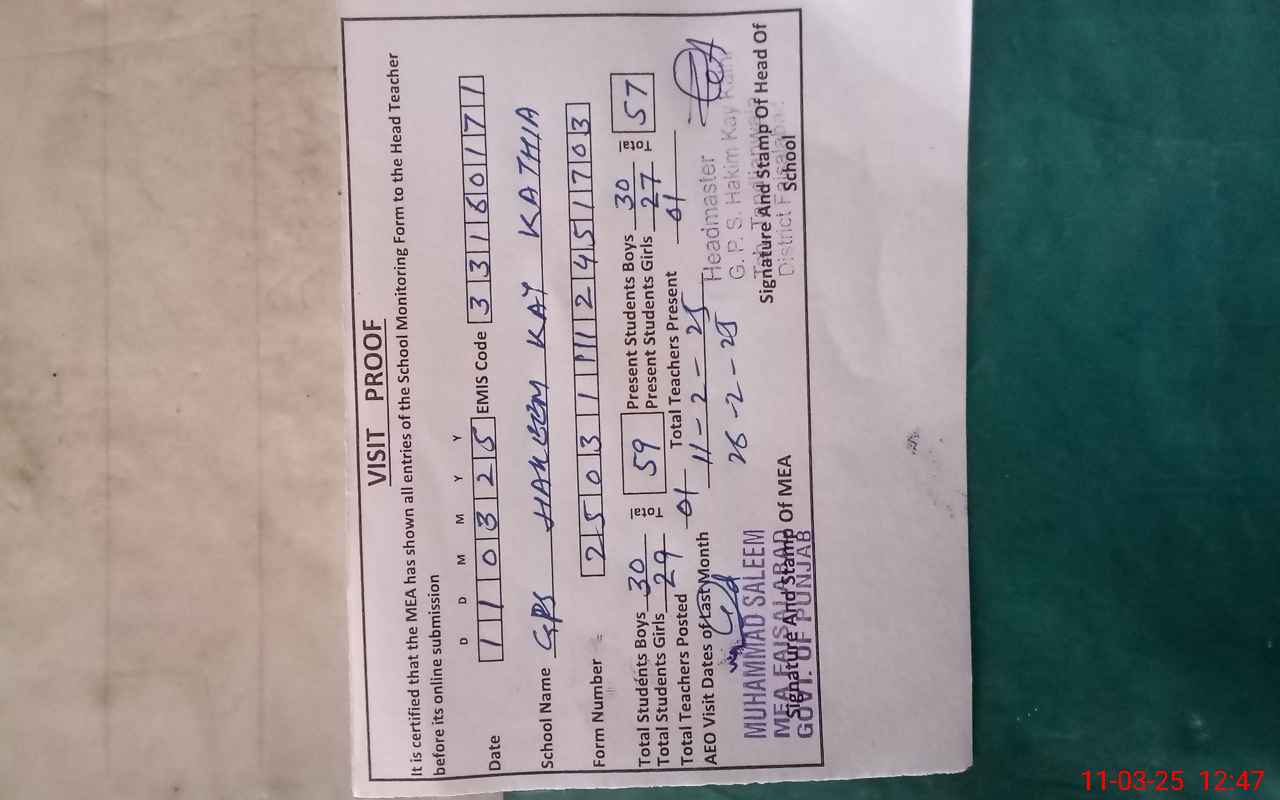 VISIT PROOF
It is certified that the MEA has shown all entries of the School Monitoring Form to the Head Teacher
before its online submission
D D M M Y Y
Date 1 1 0 3 2 5 EMIS Code 3 3 1 6 0 1 7 1
School Name GPS HAKEEM KAY KATHIA
Form Number 2 5 0 3 1 1 1 2 4 5 1 7 0 3
Total Students Boys 30 Total 59 Present Students Boys 30 Total 57
Total Students Girls 29 Present Students Girls 27
Total Teachers Posted 01 Total Teachers Present 01
AEO Visit Dates of Last Month 11-2-25
26-2-25
Headmaster
G. P. S. Hakim Kay
District Faisalabad
MUHAMMAD SALEEM
MEA FAISALABAD
GOVT. OF PUNJAB
Signature And Stamp Of MEA
Signature And Stamp Of Head Of
School
11-03-25 12:47